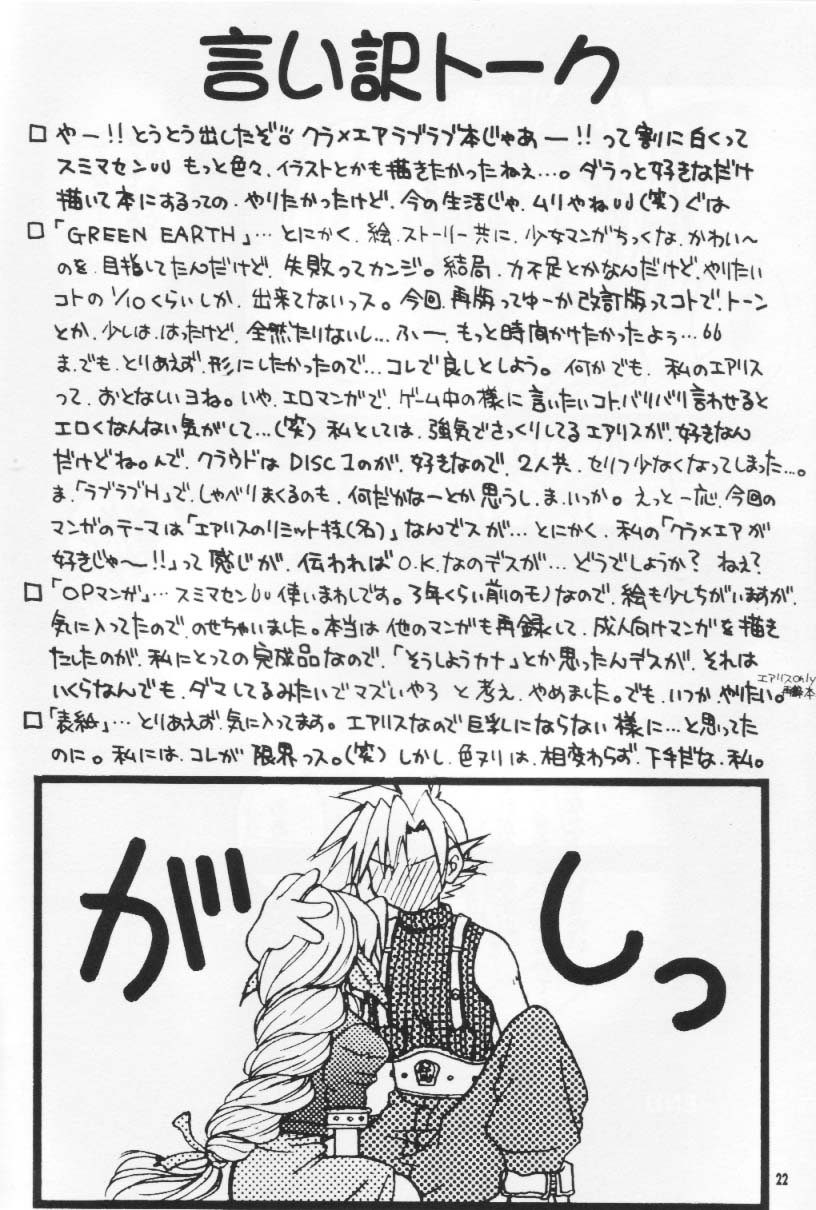 言い訳トーク
□ やー!!とうとう出したぞ クラ×エアラブラブ本じゃあー!!って割に白くって
スミマセン もっと色々、イラストとかも描きたかったねぇ…。ダラっと好きなだけ
描いて本にするっての、やりたかったけど、今の生活じゃ、ムリやね(笑)ぐは
□ 「GREEN EARTH」…とにかく、絵、ストーリー共に、少女マンガちっくな、かわい〜
のを、目指してたんだけど、失敗ってカンジ。結局、力不足とかなんだけど、やりたい
コトの1/10くらいしか、出来てないっス。今回、再版ってゆーか改訂版ってコトで、トーン
とか、少しは、はったけど、全然たりないし…ふー、もっと時間かけたかったよぅ…
ま、でも、とりあえず、形にしたかったので…コレで良しとしよう。何かでも、私のエアリス
って、おとなしいヨね。いや、エロマンガで、ゲーム中の様に言いたいコト、バリバリ言わせると
エロくなんない気がして…(笑)私としては、強気でさっくりしてるエアリスが、好きなん
だけどね。んで、クラウドはDISC1のが、好きなので、2人共、セリフ少なくなってしまった…。
ま、「ラブラブH」で、しゃべりまくるのも、何だかなーとか思うし、ま、いっか。えっと一応、今回の
マンガのテーマは「エアリスのリミット技(名)」なんでスが…とにかく、私の「クラ×エアが
好きじゃ〜!!」って感じが、伝わればO.K.なのデスが…どうでしょうか?ねぇ?
□ 「OPマンガ」…スミマセン 使いまわしです。3年くらい前のモノなので、絵も少しちがいますが、
気に入ってたので、のせちゃいました。本当は他のマンガも再録して、成人向けマンガを描き
たしたのが、私にとっての完成品なので、「そうしようカナ」とか思ったんデスが、それは
いくらなんでも、ダマしてるみたいでマズいやろ と考え、やめました。でも、いつか、やりたい。
エアリスOnly
再録本
□ 「表紙」…とりあえず、気に入ってます。エアリスなので巨乳にならない様に…と思ってた
のに。私には、コレが限界っス。(笑)しかし、色ヌリは、相変わらず、下手だな、私。
がしっ
22